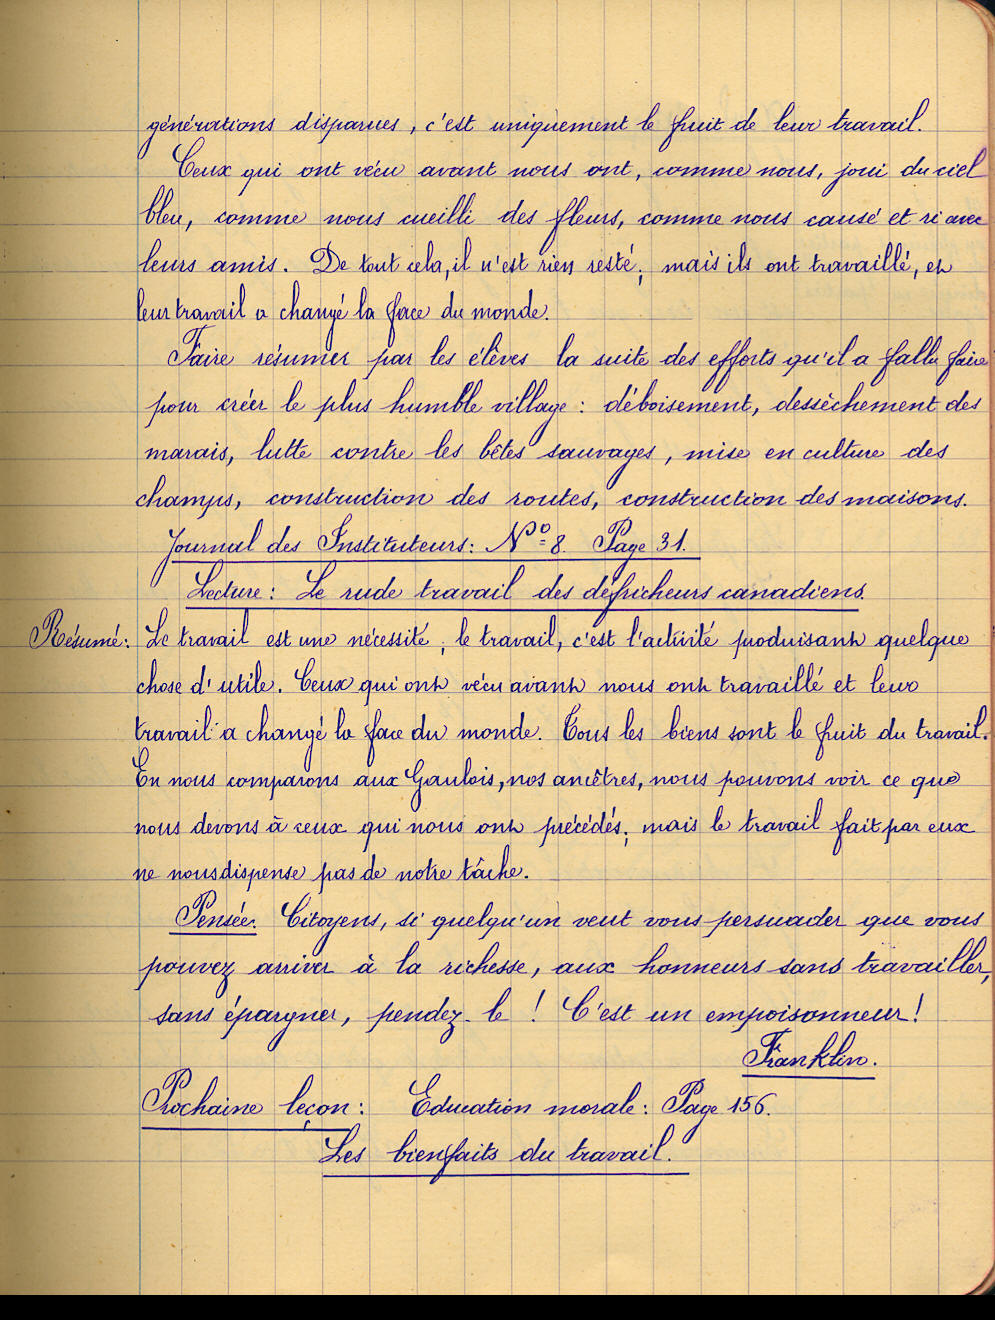 générations disparues, c'est uniquement le fruit de leur travail.
Ceux qui ont vécu avant nous ont, comme nous, joui du ciel
bleu, comme nous cueilli des fleurs, comme nous causé et ri avec
leurs amis. De tout cela, il n'est rien resté; mais ils ont travaillé, et
leur travail a changé la face du monde.
Faire résumer par les élèves la suite des efforts qu'il a fallu faire
pour créer le plus humble village : déboisement, dessèchement des
marais, lutte contre les bêtes sauvages, mise en culture des
champs, construction des routes, construction des maisons.
Journal des Instituteurs: Nº 8. Page 31.
Lecture : Le rude travail des défricheurs canadiens.
Résumé: Le travail est une nécessité; le travail, c'est l'activité produisant quelque
chose d'utile. Ceux qui ont vécu avant nous ont travaillé et leur
travail a changé la face du monde. Tous les biens sont le fruit du travail.
En nous comparons aux Gaulois, nos ancêtres, nous pouvons voir ce que
nous devons à ceux qui nous ont précédés; mais le travail fait par eux
ne nous dispense pas de notre tâche.
Pensée. Citoyens, si quelqu'un veut vous persuader que vous
pouvez arriver à la richesse, aux honneurs sans travailler,
sans épargner, pendez-le ! C'est un empoisonneur !
Franklin.
Prochaine leçon : Education morale : Page 156.
Les bienfaits du travail.